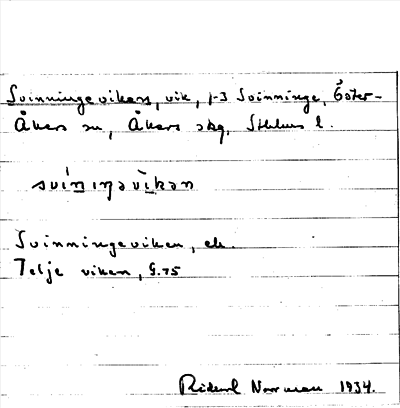 Svinningeviken, vik, 1-3 Svinninge, Öster-
Åkers sn, Åkers skg, Sthlms l.
svíniŋəvìkən
Svinningeviken, ek.
Telje viken, G.75
Rickard Norrman 1934.